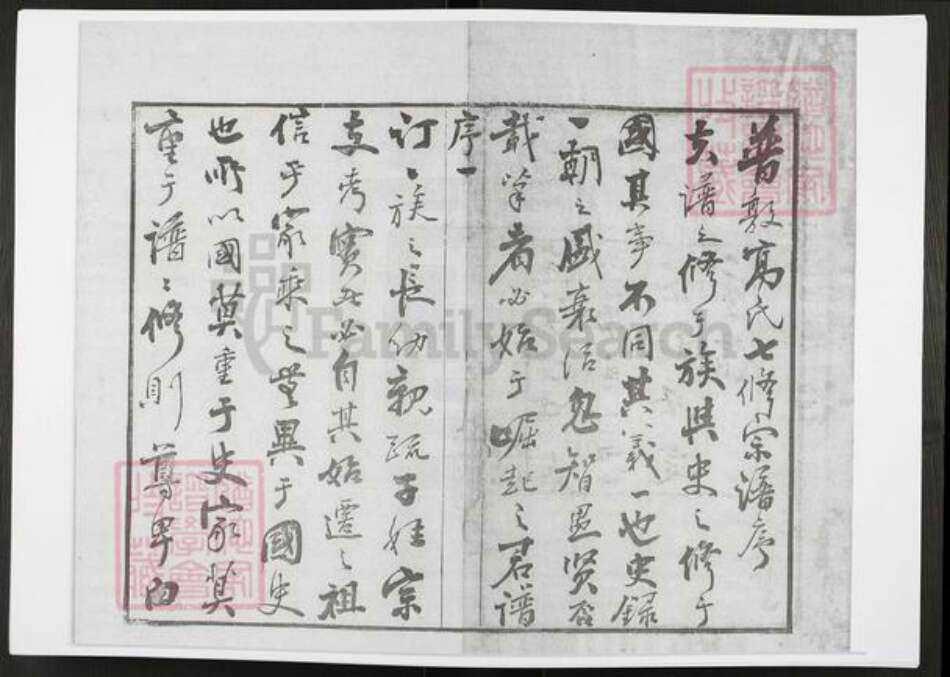 普敦高氏七修宗譜序
夫譜之修于族與史之修于
國其事不同其義一也史錄
一朝之盛衰治忽智愚賢否
載筆者必始于崛起之君譜
序一
訂一族之長幼親疏子姓宗
支考實者必自其始遷之祖
信乎家乘之無異于國史
也所以國莫重于史家莫
重于譜譜修則尊卑內
FamilySearch